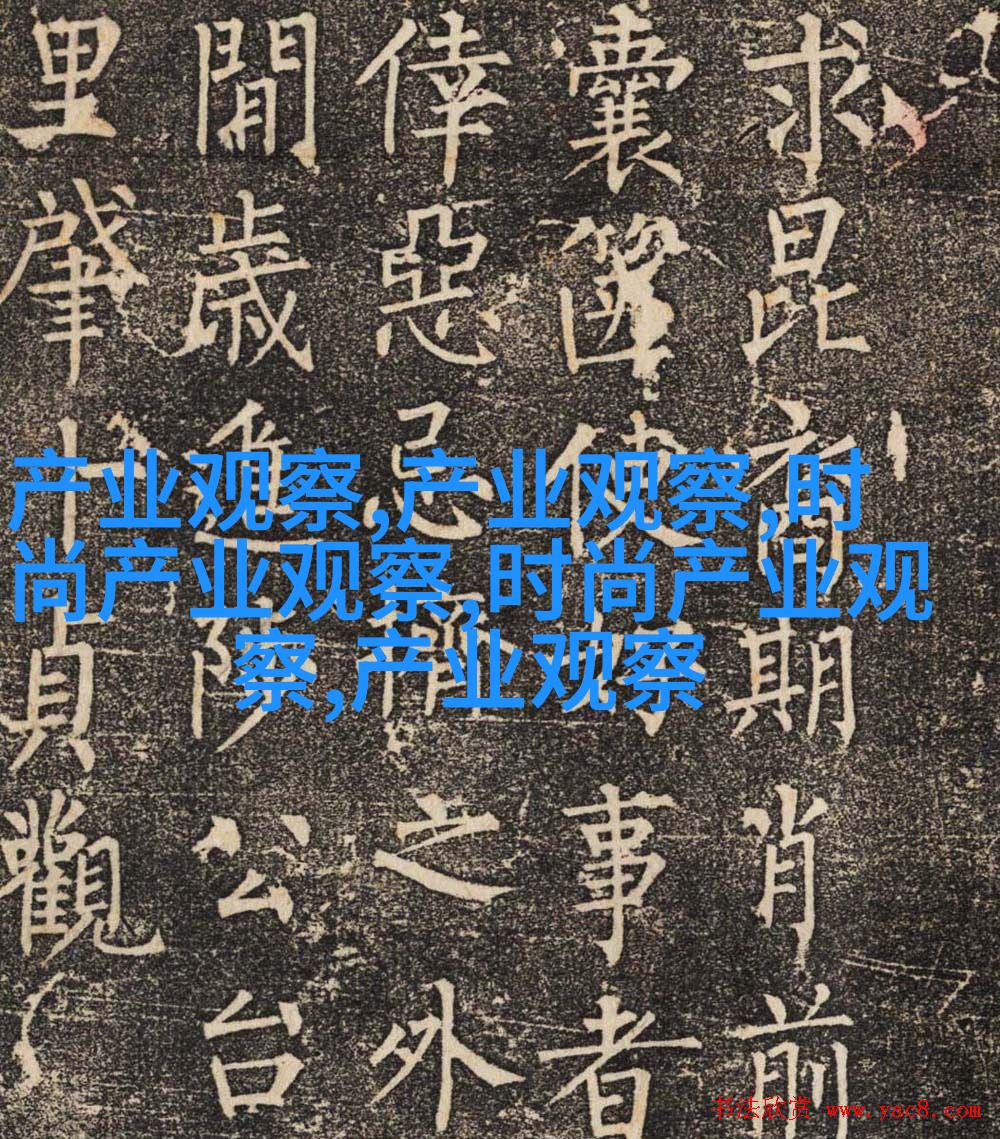 求昆期肖前
囊篋使事者
倖惡忌之外
閒歲進公台
里肇十貞觀
产业观察,产业观察,时
尚产业观察,时尚产业观
察,产业观察
书法欣赏 www.yac8.com